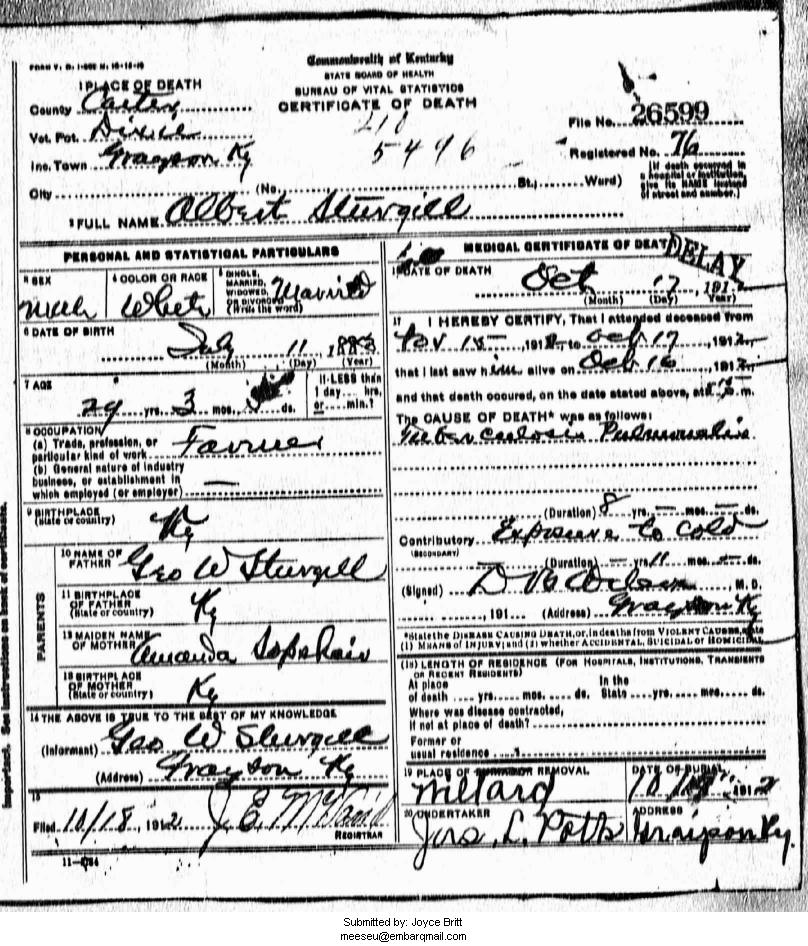 Commonwealth of Kentucky
STATE BOARD OF HEALTH
BUREAU OF VITAL STATISTICS
CERTIFICATE OF DEATH
1 PLACE OF DEATH
County Carter
Vot. Pct.
Inc. Town Grayson Ky
City (No. St.; Ward)
218
5496
File No. 26599
Registered No. 76
(If death occurred in a hospital or institution, give its NAME instead of street and number.)
2 FULL NAME Albert Sturgill
PERSONAL AND STATISTICAL PARTICULARS
3 SEX
4 COLOR OR RACE
5 SINGLE, MARRIED, WIDOWED, OR DIVORCED (Write the word) Married
6 DATE OF BIRTH
July 11, 1883
(Month) (Day) (Year)
7 AGE
29 yrs. 3 mos. ds.
If LESS than 1 day... hrs. or... min.?
8 OCCUPATION
(a) Trade, profession, or particular kind of work Farmer
(b) General nature of industry business, or establishment in which employed (or employer) —
9 BIRTHPLACE
(State or country) Ky
PARENTS
10 NAME OF FATHER Geo W Sturgill
11 BIRTHPLACE OF FATHER (State or country) Ky
12 MAIDEN NAME OF MOTHER Amanda
13 BIRTHPLACE OF MOTHER (State or country) Ky
14 THE ABOVE IS TRUE TO THE BEST OF MY KNOWLEDGE
(Informant) Geo W Sturgill
(Address) Grayson Ky
15
Filed 10/18, 1912 J. E. REGISTRAR
11-
MEDICAL CERTIFICATE OF DEATH
DELAY
16 DATE OF DEATH
Oct 17, 1912
(Month) (Day) (Year)
17 I HEREBY CERTIFY, That I attended deceased from
191 to Oct 17, 1912
that I last saw him alive on Oct 16, 1912
and that death occured, on the date stated above, at m.
The CAUSE OF DEATH* was as follows:
Tuberculosis Pulmonalis
(Duration) 8 yrs. — mos. — ds.
Contributory Exposure to Cold
(SECONDARY)
(Duration) — yrs. 11 mos. — ds.
(Signed) M.D.
, 191 (Address) Grayson Ky
*State the DISEASE CAUSING DEATH, or, in deaths from VIOLENT CAUSES, state
(1) MEANS OF INJURY; and (2) whether ACCIDENTAL, SUICIDAL or HOMICIDAL
(18) LENGTH OF RESIDENCE (FOR HOSPITALS, INSTITUTIONS, TRANSIENTS
OR RECENT RESIDENTS)
At place of death yrs. mos. ds. In the State yrs. mos. ds.
Where was disease contracted,
If not at place of death?
Former or
usual residence
19 PLACE OF BURIAL OR REMOVAL Willard
DATE OF BURIAL 1912
20 UNDERTAKER Jas. L. Potts
ADDRESS Graipson Ky.
Important. See instructions on back of certificate.
Submitted by: Joyce Britt
meeseu@embarqmail.com